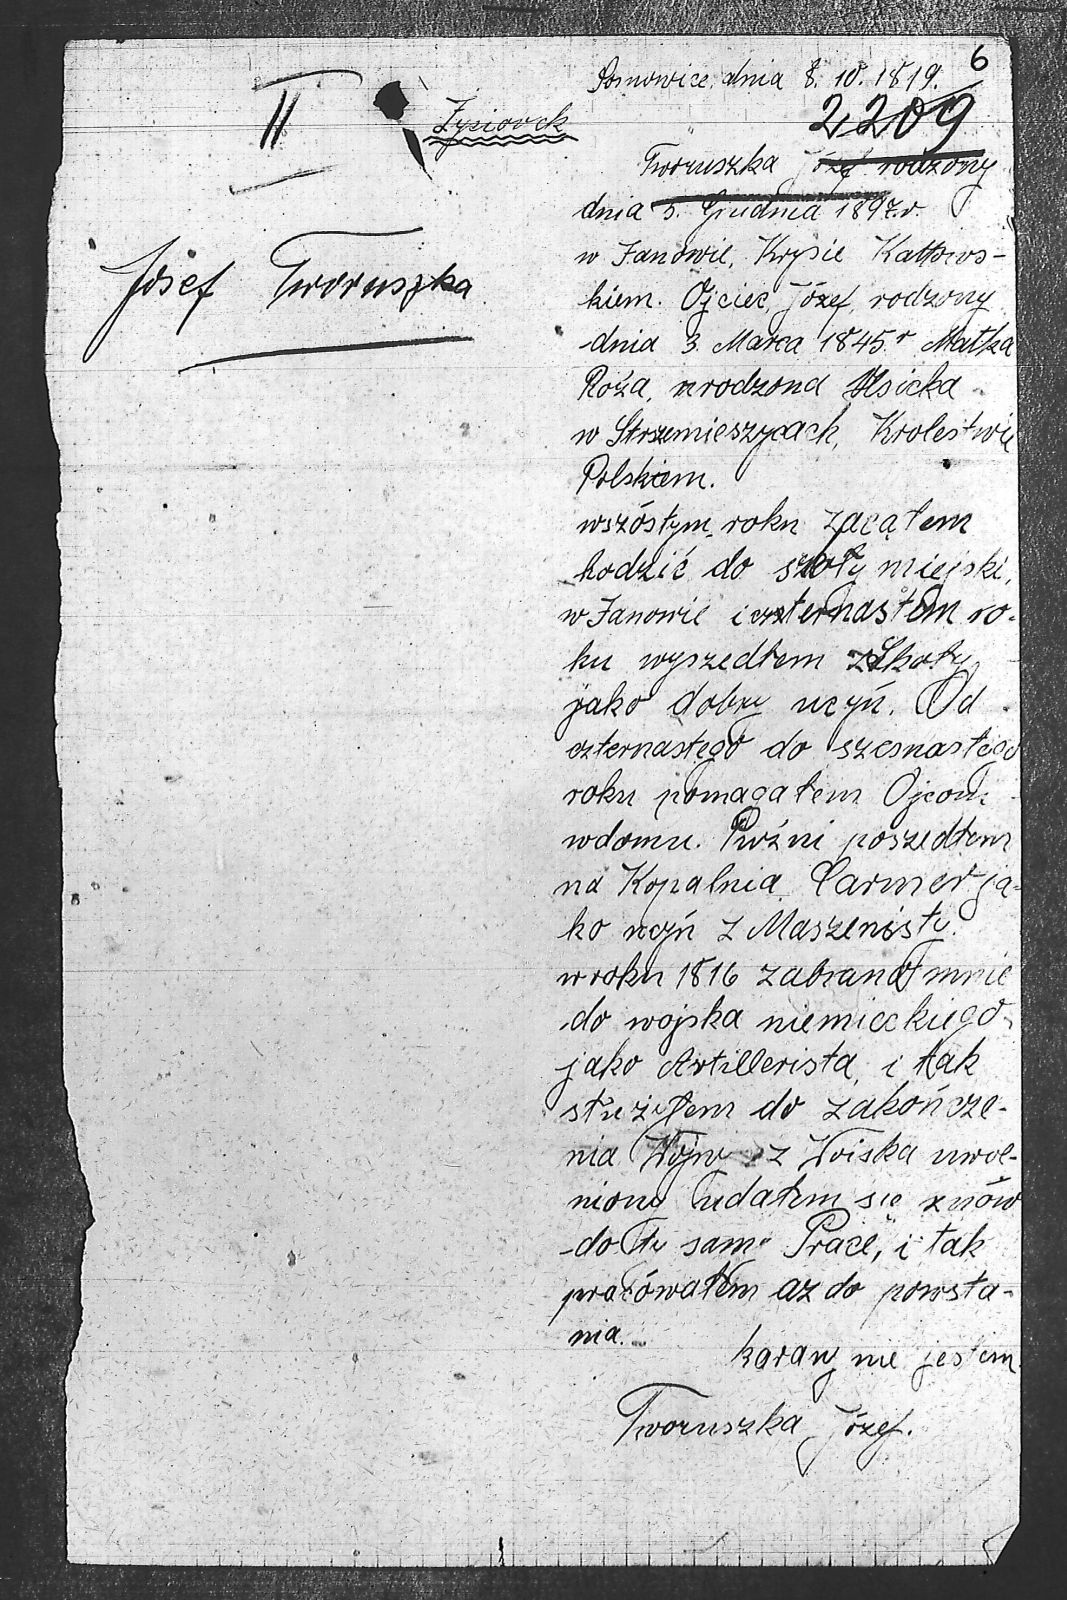 6
Sosnowice, dnia 8. 10. 1819.
II
2209
Życiorek
Tworuszka Józef rodzony
dnia 5. Grudnia 1897.r.
w Janowie, Krysie Kattows-
kiem. Ojciec, Józef, rodzony
dnia 3. Marca 1845.r Matka
Roża, urodzona
w Strzemieszycach, Krolestwie
Polskiem.
wszóstym, roku zacąłem
hodzić do szkoły miejski,
w Janowie i czternastem ro-
ku wyszedłem zSkoły
jako dobry uczyń. Od
czternastego do szesnastego
roku pomagałem Ojcow.
wdomu. Puźni poszedłem
na Kopalnia Carmer ja-
ko uczyń z Maszenisty.
w roku 1816 zabrano mnie
do wojska niemieckiego
jako Artillerista, i tak
służyłem do zakończe-
nia Wojny z Woiska uwol-
niony udałem się znów
do ty samy Prace, i tak
pracówałem az do powsta-
nia.
karany nie jestem
Tworuszka Józef.
Josef Tworuszka